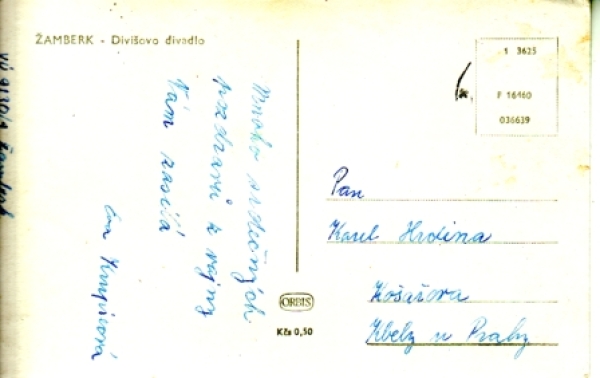 ŽAMBERK - Divišovo divadlo
Mnoho srdečných
pozdravů z vojny
Vám zasílá
1 3625
F 16460
036639
Pan
Karel Hrdina
Košařova
Kbely u Prahy
ORBIS
Kčs 0,50